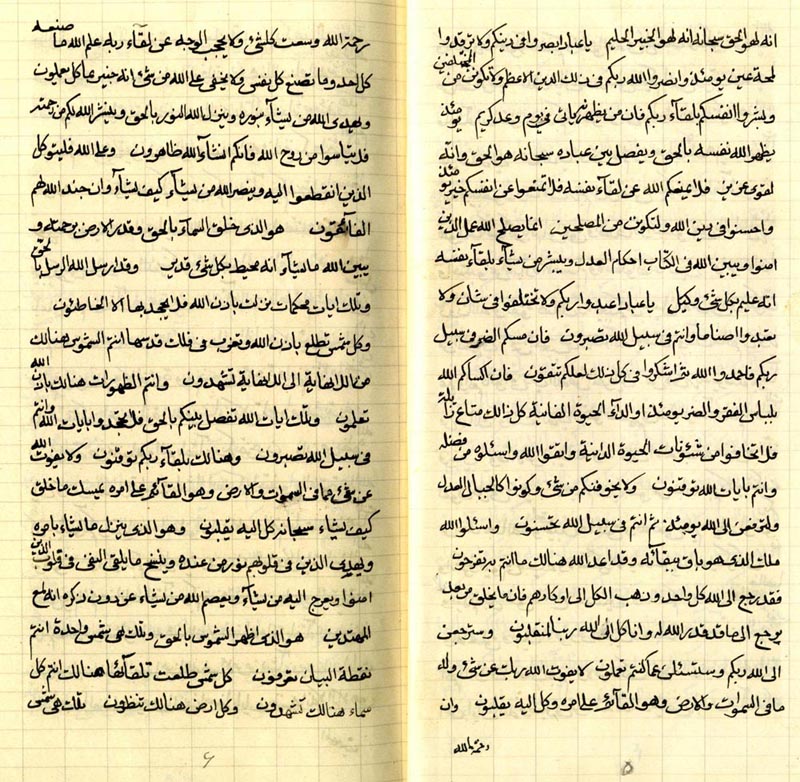 انه لهو الحق سبحانه انه لهو الخبير الحليم يا عباد ابصروا في دينكم ولا ترقدوا
لمحة عين يومئذ وانصروا الله ربكم في ذلك الدين الاعظم ولا تكونن من المختلفين
وبشروا انفسكم بلقآء ربكم فان من يظهر يأتي في يوم وعد كريم يومئذ
يظهر الله نفسه بالحق ويفصل بين عباده سبحانه هو الحق وانه
لقوى عزيز فلا تمنعكم الله عن لقآء نفسه فلا تمنعوا عن انفسكم خير يومئذ
واحسنوا في دين الله ولتكونن من المصلحين انما يصلح الله عمل الذين
امنوا ويبين الله في الكتاب احكام العدل ويبشر من يشآء بلقآء نفسه
انه عليم بكل شئ وكيل يا عباد اعبدوا ربكم ولا تختلفوا في شأن ولا
تعبدوا اصناما وانتم في سبيل الله تصبرون فان مسكم الضر في سبيل
ربكم فاحمدوا الله ثم اشكروا في كل ذلك لعلكم تتقون فان اكساكم الله
بلباس الفقر والضر يومئذ او الدآء الحيوة الفانية كل ذلك متاع زائلة
فلا تخافوا من شئونات الحيوة الدانية واتقوا الله واسئلوه من فضله
وانتم بايات الله توقنون ولا يخوفنكم من شئ وكونوا كالجبال العدل
ولترفعن الى الله يومئذ ثم انتم في سبيل الله تحسنون واسئلوا الله
ملك الذي هو باق ببقآئه وقد اعد الله هنالك ما انتم به تفرحون
فقد رجع الى الله كل واحد وذهب الكل الى اوكارهم فان ما يخلق من بعد
يرجع الى ما قد قدر الله له وانا كل الى الله ربنا لمنقلبون وسترجعن
الى الله ربكم وستسئلن عما كنتم تعملون لا يفوت الله ربك عن شئ وله
ما في السموات والارض وهو القآئم على امره وكل اليه يقلبون وان
رحمة الله
٥
رحمة الله وسعت كلشئ ولا يحجب الوجه عن لقآء ربه علم الله ما صنعه
كل احد وما تصنع كل نفس ولا يخفى على الله من شئ انه خبير عما كل يعملون
ويهدى الله من يشآء بنوره وينزل الله النور بالحق وينشر الله لكم من رحمته
فلا تيأسوا من روح الله فانكم انشآء الله ظاهرون وعلى الله فليتوكل
الذين انقطعوا اليه وينصر الله من يشآء كيف يشآء وان جند الله لهم
الفآئقون هو الذى خلق السمآء بالحق وقدر الارض برحمته و
يبين الله ما يشآء انه محيط بكل شئ قدير وقد ارسل الله الرسل بالحق
وتلك ايات محكمات نزلت باذن الله فلا يجحد بها الا الخاطئون
وكل شمس تطلع باذن الله وتغرب في فلك قدسها انتم الشموس هنالك
من لا بداية الى لا نهاية تشهدون وانتم الظهورات هنالك باذن الله
تعلمون وتلك ايات الله تفصل بينكم بالحق فلا تجحدوا بايات الله وانتم
في سبيل الله تصبرون وهنالك بلقآء ربكم توقنون ولا يفوت الله
عن شئ عما في السموات والارض وهو القآئم على امره يمسك ما خلق
كيف يشآء سبحانه كل اليه يقلبون وهو الذى ينزل ما يشآء بامره
ويهدى الذين في قلوبهم نور من عنده وينسخ ما يلقى النفى في قلوب الذين
امنوا ويعرج اليه من يشآء ويعصم الله من يشآء عن دون ذكره انه مع
المهتدين هو الذى اظهر الشموس بالحق وتلك لهى شمس واحدة انتم
نقطة البيان تعرفون كل شمس طلعت تلقآئها هنالك انتم كل
سماء هنالك تشهدون وكل ارض هنالك تنظرون تلك هى شمس
٦